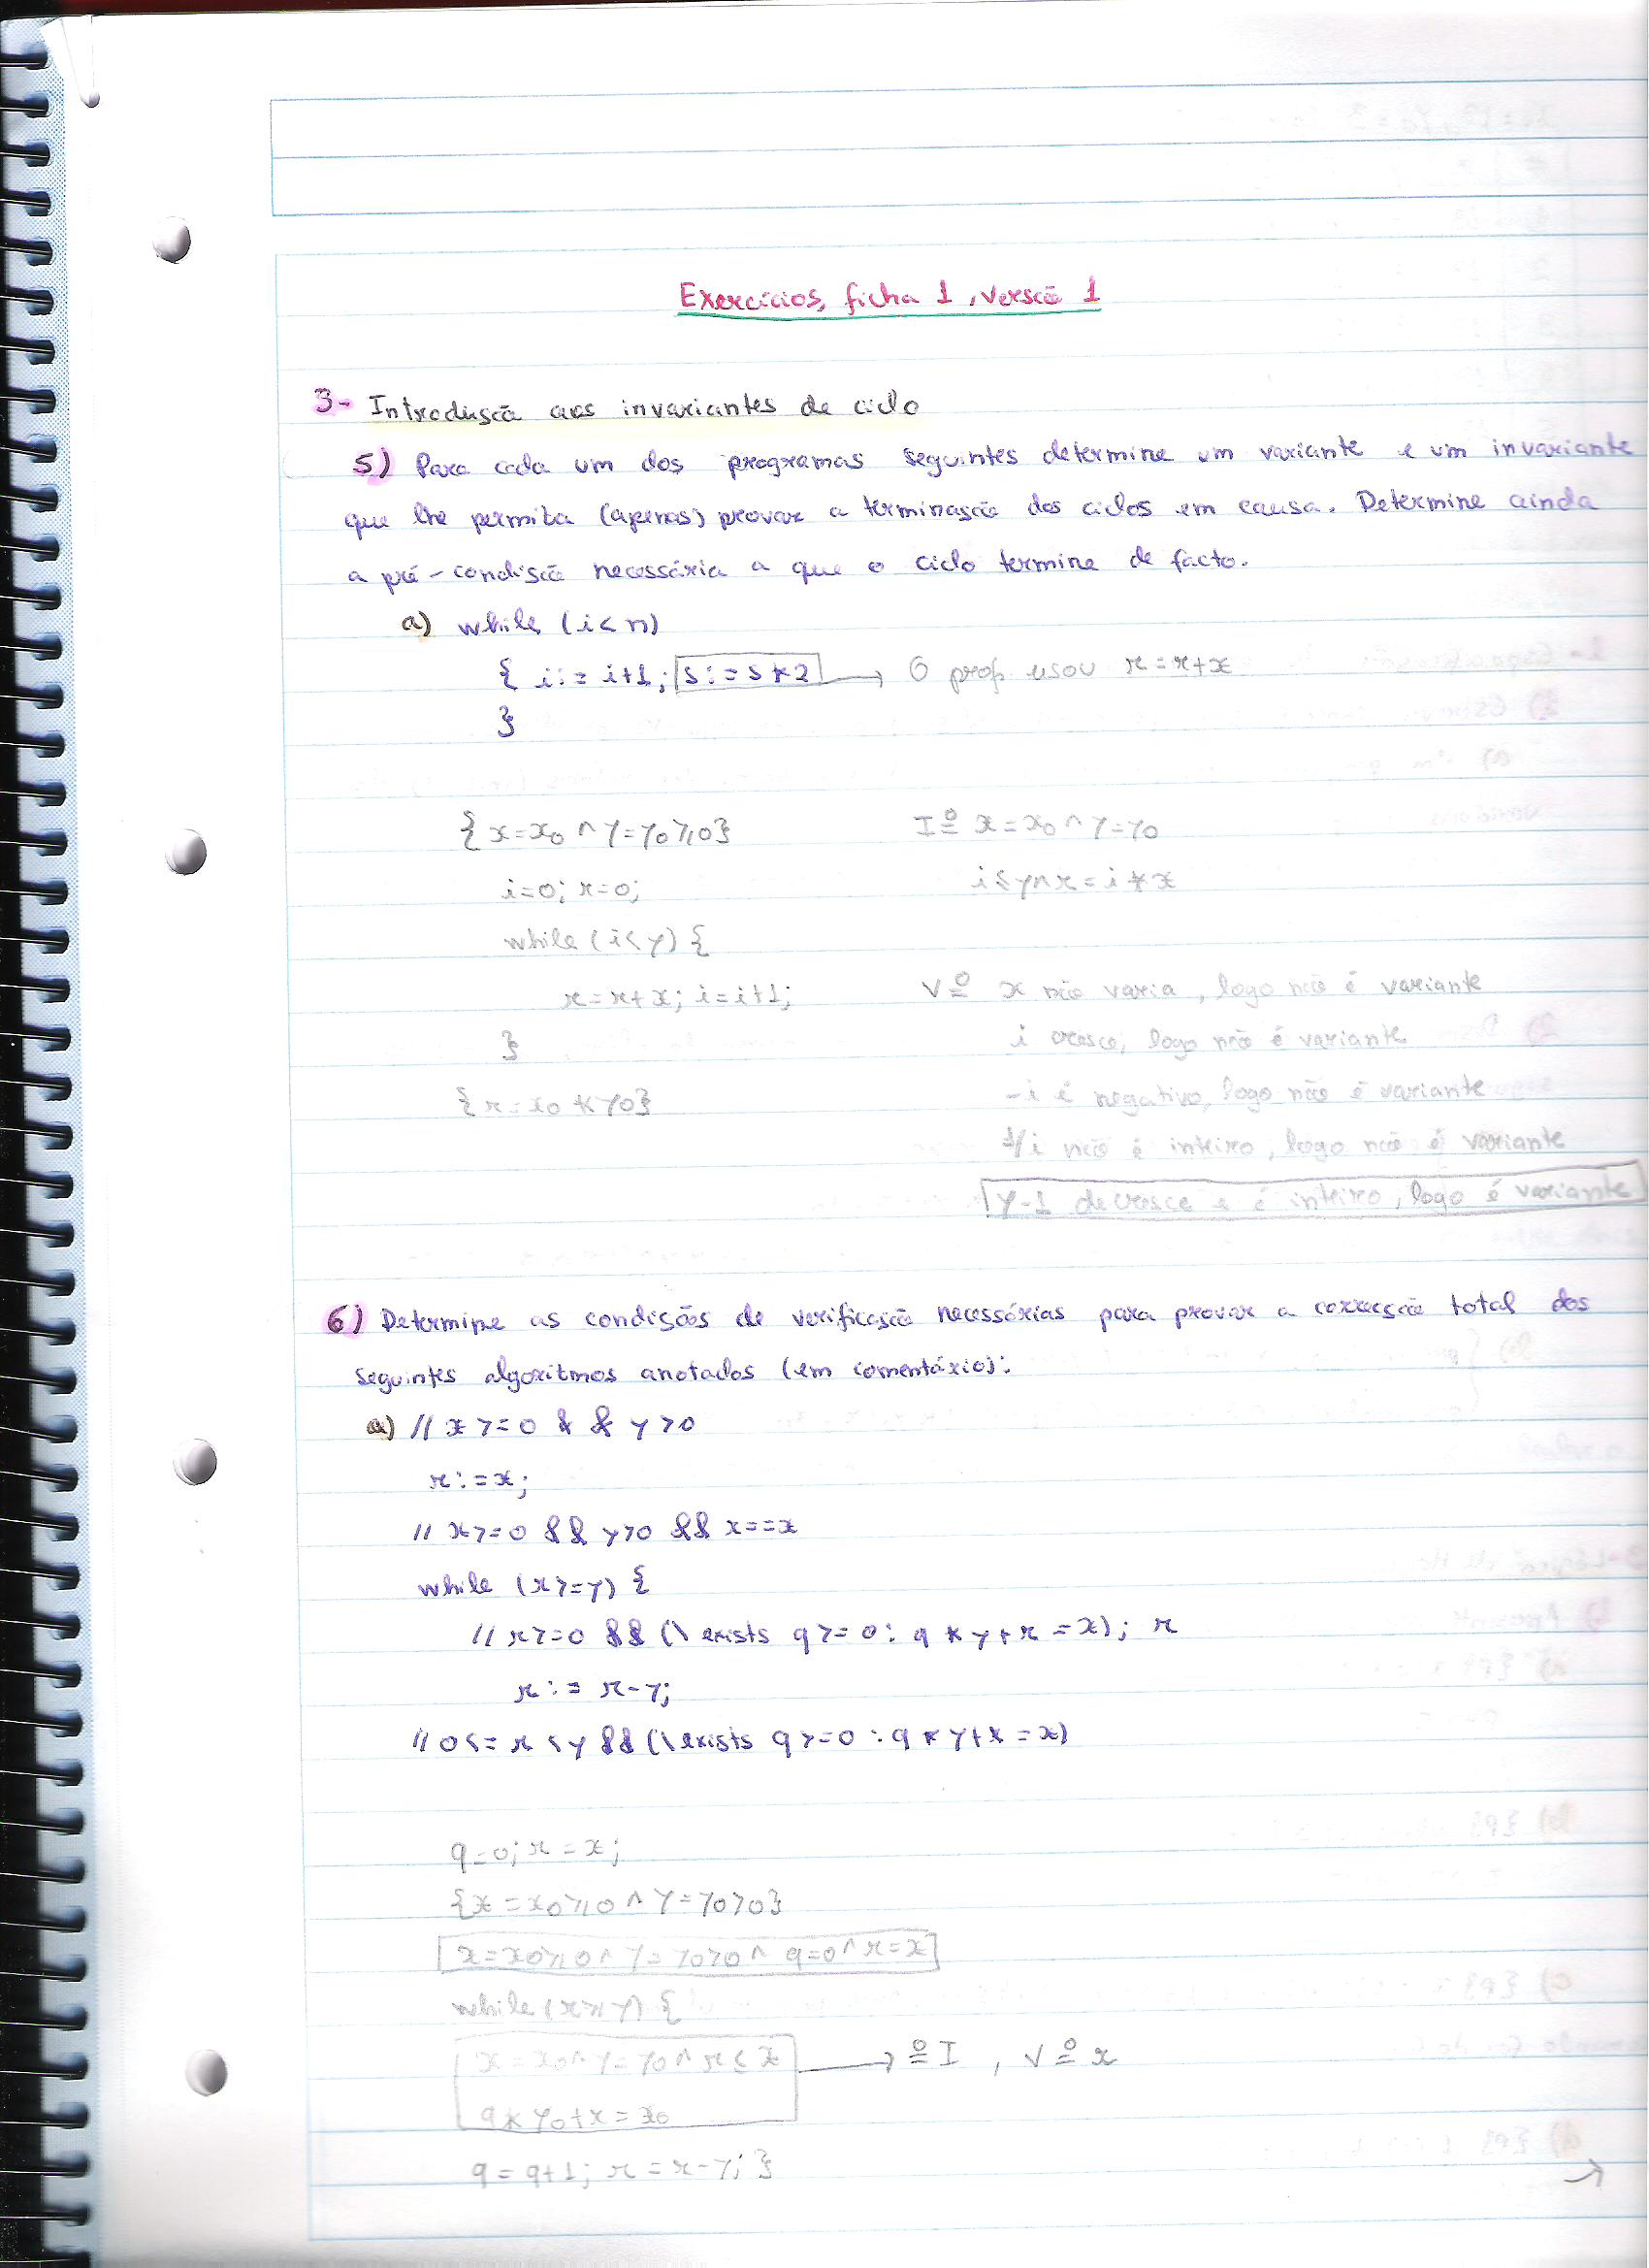 Exercícios, ficha 1, versão 1
3- Introdução aos invariantes de ciclo
5) Para cada um dos programas seguintes determine um variante e um invariante
que lhe permita (apenas) provar a terminação dos ciclos em causa. Determine ainda
a pré-condição necessária a que o ciclo termine de facto.
a) while (i<n)
{ i:= i+1; s:=s*2 → O prof. usou r=r+x
}
{x=x₀ ∧ y=y₀≥0} I ≙ x=x₀ ∧ y=y₀
i=0; r=0; i≤y ∧ r=i*x
while (i<y) {
r=r+x; i=i+1; V ≙ x não varia, logo não é variante
} i cresce, logo não é variante
{r=x₀*y₀} -i é negativo, logo não é variante
1/i não é inteiro, logo não é variante
y-1 decresce e é inteiro, logo é variante
6) Determine as condições de verificação necessárias para provar a correcção total dos
seguintes algoritmos anotados (em comentário):
a) // x>=0 && y>0
r:=x;
// x>=0 && y>0 && r==x
while (r>=y) {
// r>=0 && (\exists q>=0: q*y+r=x); r
r:= r-y;
// 0<=r<y && (\exists q>=0: q*y+r=x)
q=0; r=x;
{x=x₀≥0 ∧ y=y₀>0}
x=x₀≥0 ∧ y=y₀>0 ∧ q=0 ∧ r=x
while (r≥y) {
x=x₀ ∧ y=y₀ ∧ r≤x → ≙ I , V ≙ r
q*y₀+r=x₀
q=q+1; r=r-y; }
→